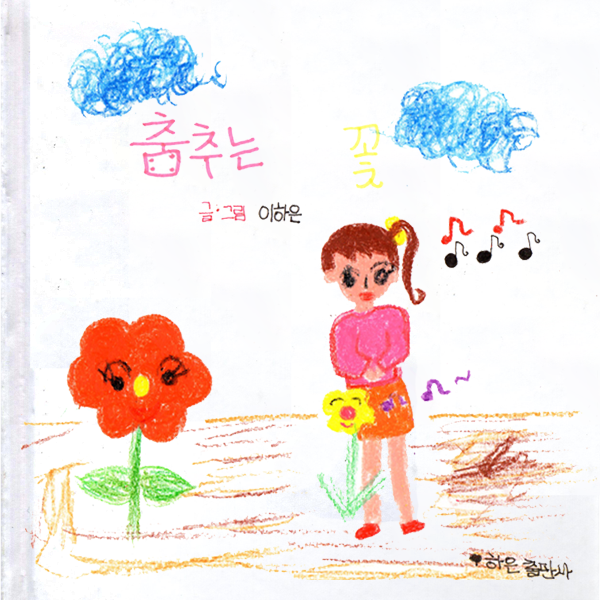 춤추는 꽃
글·그림 이하은
♥하은 출판사